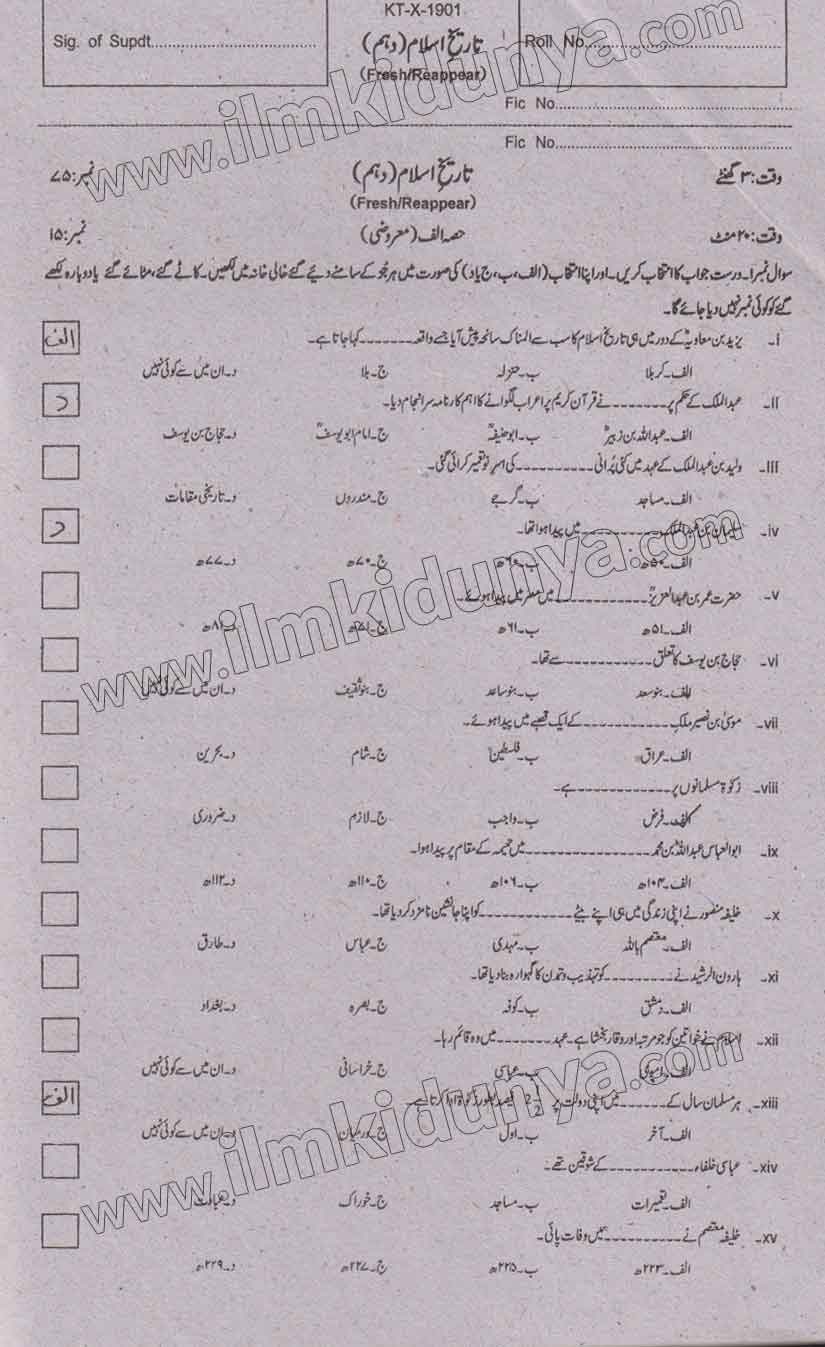 KT-X-1901
Sig. of Supdt............................ تاریخ اسلام (دہم) Roll No............................
(Fresh/Reappear)
Fic No............................
Fic No............................
وقت: ۳ گھنٹے تاریخ اسلام (دہم) نمبر: ۷۵
(Fresh/Reappear)
وقت: ۲۰ منٹ حصہ الف (معروضی) نمبر: ۱۵
سوال نمبر۱۔ درست جواب کا انتخاب کریں۔ اور اپنا انتخاب (الف، ب، ج یا د) کی صورت میں ہر جُو کے سامنے دیئے گئے خالی خانہ میں لکھیں۔ کاٹے گئے، مٹائے گئے یا دوبارہ لکھے
گئے کو کوئی نمبر نہیں دیا جائے گا۔
i۔ یزید بن معاویہؓ کے دور میں ہی تاریخ اسلام کا سب سے المناک سانحہ پیش آیا جسے واقعہ ۔۔۔۔۔۔۔ کہا جاتا ہے۔ الف
الف۔ کربلا ب۔ حنزلہ ج۔ بلا د۔ ان میں سے کوئی نہیں
II۔ عبدالملک کے حکم پر ۔۔۔۔۔۔۔ نے قرآن کریم پر اعراب لگوانے کا اہم کارنامہ سرانجام دیا۔ د
الف۔ عبداللہ بن زبیرؓ ب۔ ابوحنیفہؒ ج۔ امام ابو یوسفؒ د۔ حجاج بن یوسف
III۔ ولید بن عبدالملک کے عہد میں کئی پُرانی ۔۔۔۔۔۔۔ کی اسرِ نو تعمیر کرائی گئی۔
الف۔ مساجد ب۔ گرجے ج۔ مندروں د۔ تاریخی مقامات
iv۔ سلیمان بن عبدالملک ۔۔۔۔۔۔۔ میں پیدا ہوا تھا۔ د
الف۔ ۵۰ھ ب۔ ۶۰ھ ج۔ ۷۰ھ د۔ ۷۷ھ
v۔ حضرت عمر بن عبدالعزیزؒ ۔۔۔۔۔۔۔ میں مصر میں پیدا ہوئے۔
الف۔ ۵۱ھ ب۔ ۶۱ھ ج۔ ۷۱ھ د۔ ۸۱ھ
vi۔ حجاج بن یوسف کا تعلق ۔۔۔۔۔۔۔ سے تھا۔
الف۔ بنو سعد ب۔ بنو ساعد ج۔ بنو ثقیف د۔ ان میں سے کوئی نہیں
vii۔ موسیٰ بن نصیر ملکِ ۔۔۔۔۔۔۔ کے ایک قصبے میں پیدا ہوئے۔
الف۔ عراق ب۔ فلسطین ج۔ شام د۔ بحرین
viii۔ زکوٰۃ مسلمانوں پر ۔۔۔۔۔۔۔ ہے۔
الف۔ فرض ب۔ واجب ج۔ لازم د۔ ضروری
ix۔ ابوالعباس عبداللہ بن محمد ۔۔۔۔۔۔۔ میں حمیمہ کے مقام پر پیدا ہوا۔
الف۔ ۱۰۴ھ ب۔ ۱۰۶ھ ج۔ ۱۱۰ھ د۔ ۱۱۲ھ
x۔ خلیفہ منصور نے اپنی زندگی میں ہی اپنے بیٹے ۔۔۔۔۔۔۔ کو اپنا جانشین نامزد کر دیا تھا۔
الف۔ معتصم باللہ ب۔ مہدی ج۔ عباس د۔ طارق
xi۔ ہارون الرشید نے ۔۔۔۔۔۔۔ کو تہذیب و تمدن کا گہوارہ بنا دیا تھا۔
الف۔ دمشق ب۔ کوفہ ج۔ بصرہ د۔ بغداد
xii۔ اسلام نے خواتین کو جو مرتبہ اور وقار بخشا ہے۔ عہد ۔۔۔۔۔۔۔ میں وہ قائم رہا۔
الف۔ اموی ب۔ عباسی ج۔ خراسانی د۔ ان میں سے کوئی نہیں
xiii۔ ہر مسلمان سال کے ۔۔۔۔۔۔۔ میں اپنی دولت پر 2 1/2 فیصد بطور زکوٰۃ ادا کرتا ہے۔ الف
الف۔ آخر ب۔ اول ج۔ درمیان د۔ ان میں سے کوئی نہیں
xiv۔ عباسی خلفاء ۔۔۔۔۔۔۔ کے شوقین تھے۔
الف۔ تعمیرات ب۔ مساجد ج۔ خوراک د۔ عبادت
xv۔ خلیفہ معتصم نے ۔۔۔۔۔۔۔ میں وفات پائی۔
الف۔ ۲۲۳ھ ب۔ ۲۲۵ھ ج۔ ۲۲۷ھ د۔ ۲۲۹ھ
www.ilmkidunya.com
www.ilmkidunya.com
www.ilmkidunya.com